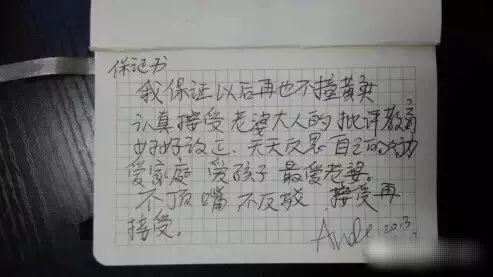 保证书
我保证以后再也不撞黄灯
认真接受老婆大人的批评教育
好好改正、天天反思自己的行为
爱家庭 爱孩子 最爱老婆。
不顶嘴 不反驳 接受再
接受。
Andy 2013.